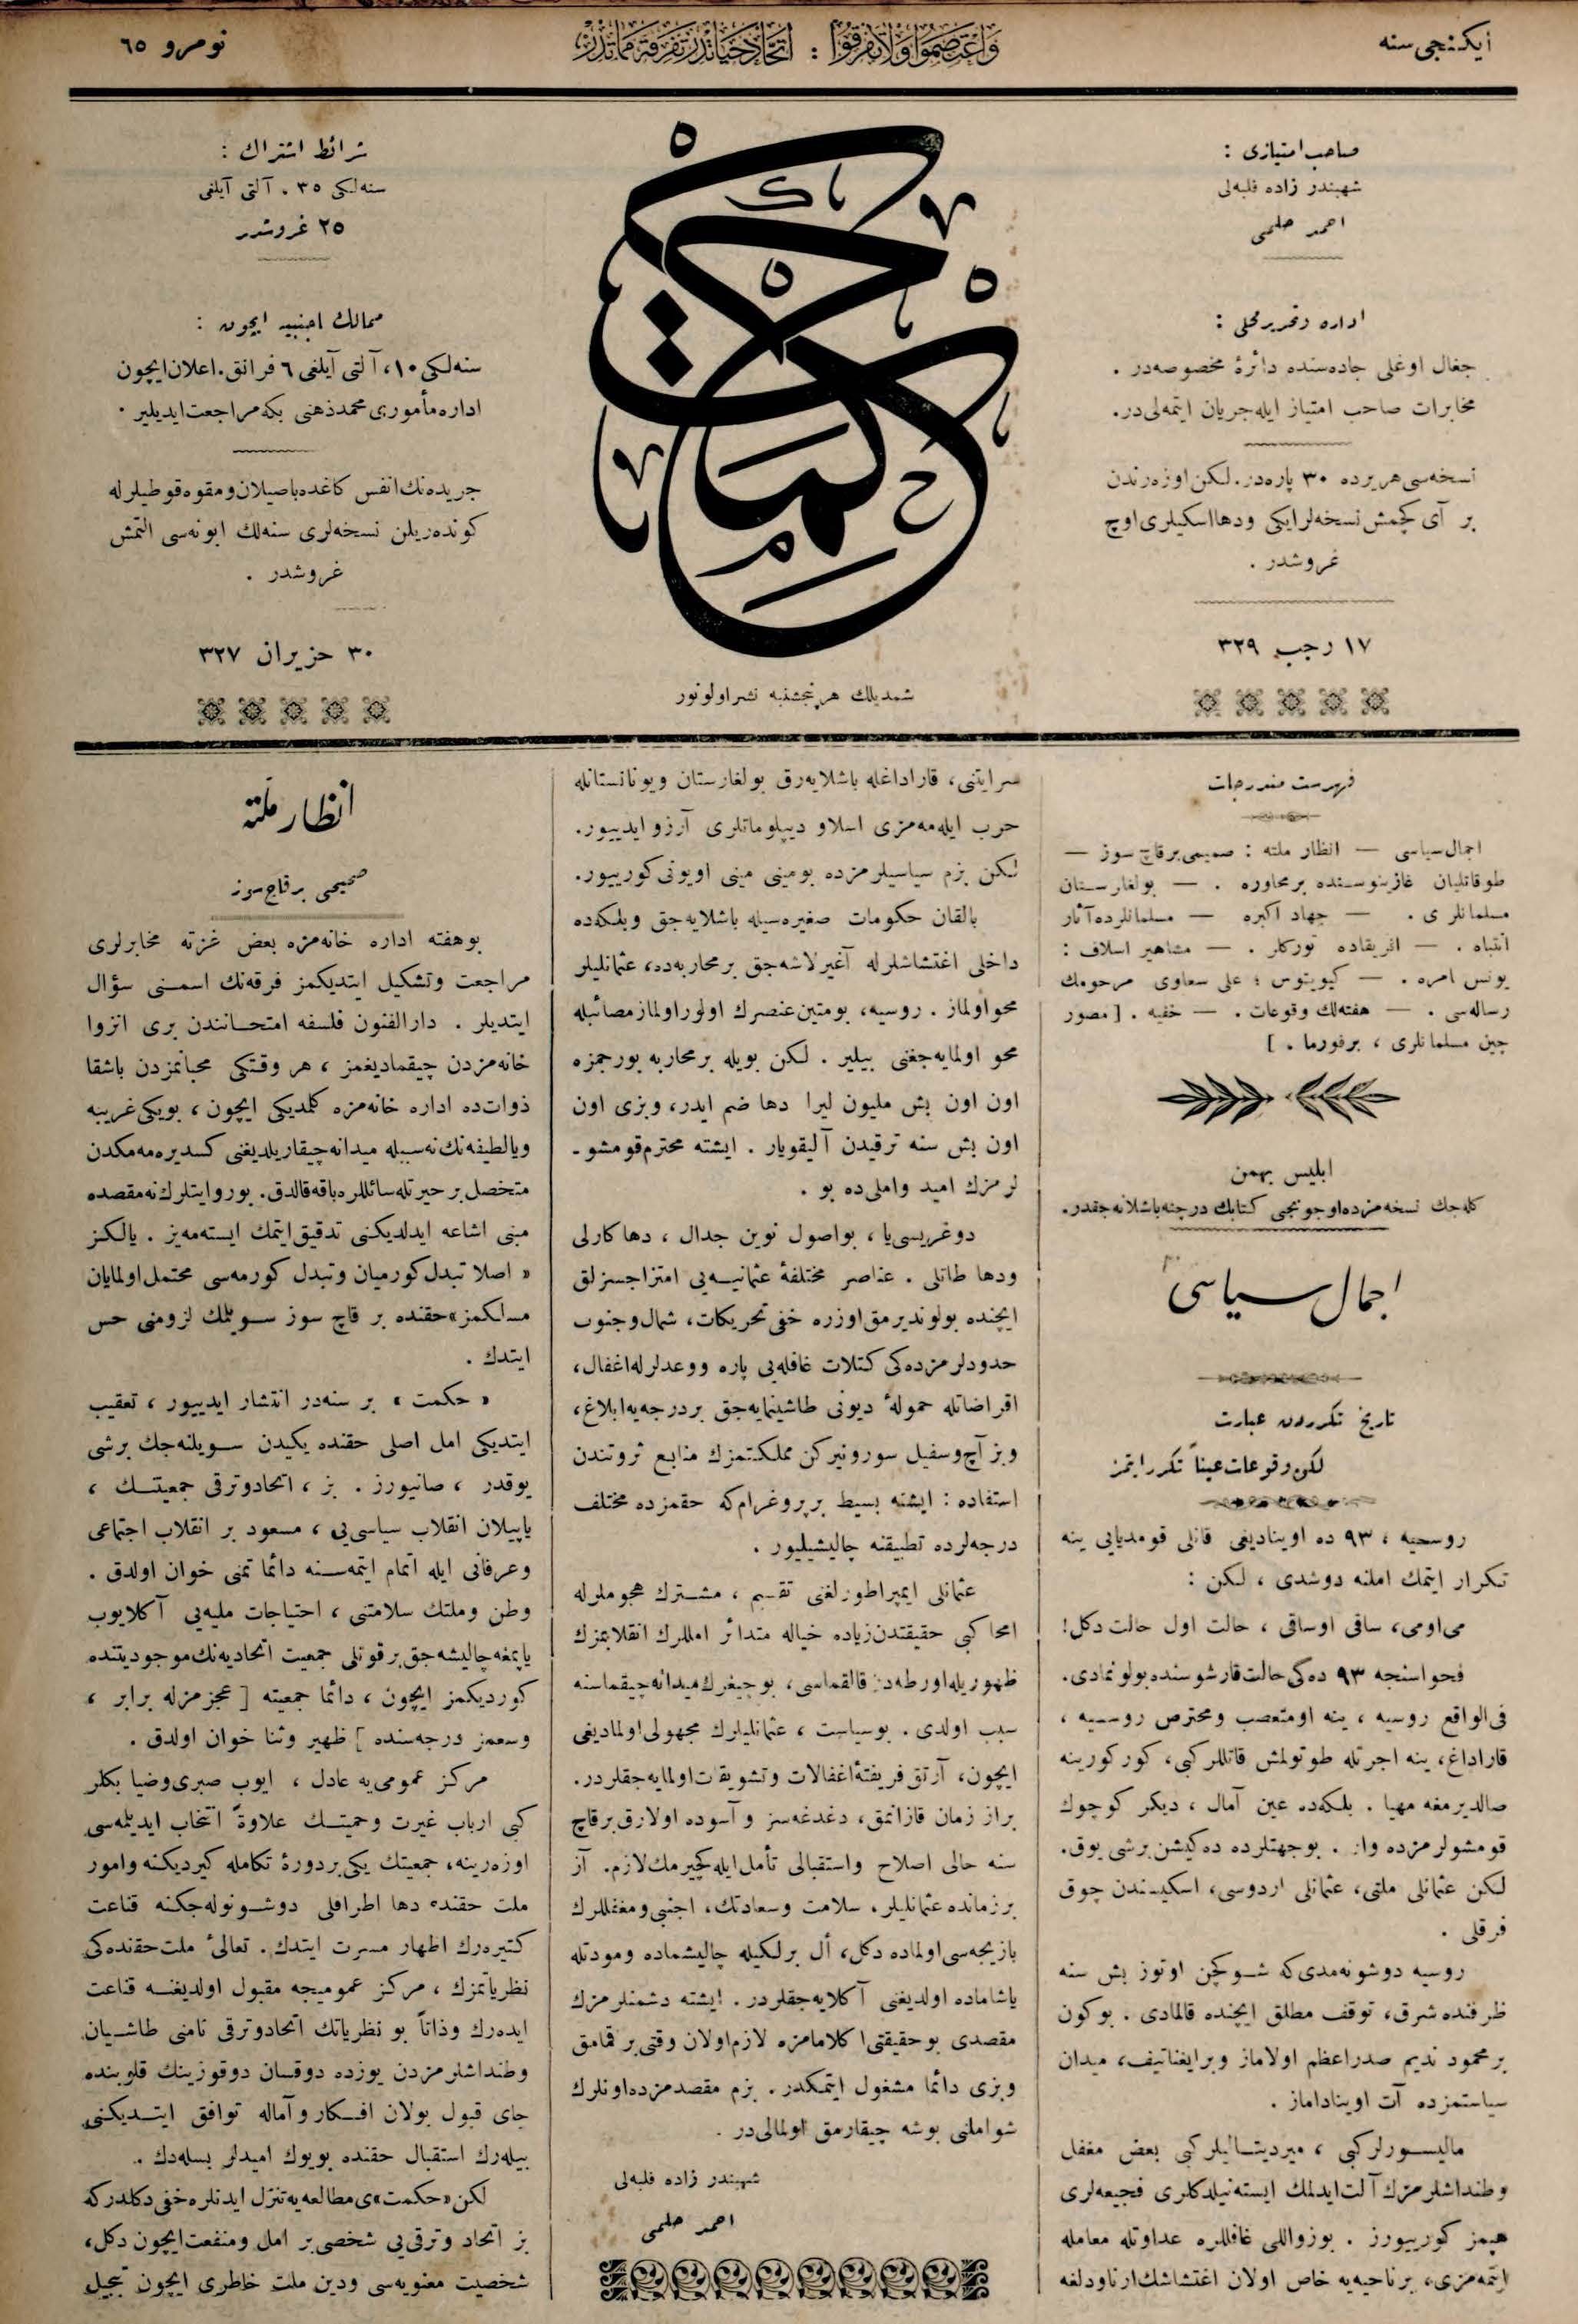 ایكنجی سنه
وَاعْتَصِمُوا وَلَا تَفَرَّقُوا : اتحاد حیاتدر تفرقه مماتدر
نومرو ٦٥
صاحب امتیازی :
شهبندر زاده فلبه‌لی
احمد حلمی
اداره و تحریر محلی :
جغال اوغلی جاده‌سنده دائرهٔ مخصوصه‌در .
مخابرات صاحب امتیاز ایله جریان ایتمه‌لی‌در.
نسخه‌سی هر یرده ٣٠ پاره‌در. لكن اوزه‌رندن
بر آی كچمش نسخه‌لر ایكی ودها اسكیلری اوچ
غروشدر .
١٧ رجب ٣٢٩
حكمت
شمدیلك هر پنجشنبه نشر اولونور
شرائط اشتراك :
سنه‌لكی ٣٥ . آلتی آیلغی
٢٥ غروشدر
ممالك اجنبیه ایچون :
سنه‌لكی ١٠، آلتی آیلغی ٦ فرانق. اعلان ایچون
اداره مأموری محمد ذهنی بكه مراجعت ایدیلیر .
جریده‌نك انفس كاغده باصیلان و مقوه قوطیلرله
كونده‌ریلن نسخه‌لری سنه‌لك ابونه‌سی التمش
غروشدر .
٣٠ حزیران ٣٢٧
فهرست مندرجات
اجمال سیاسی — انظار ملته : صمیمی برقاچ سوز —
طوقاتلیان غازینوسنده بر محاوره . — بولغارستان
مسلمانلری . — جهاد اكبره — مسلمانلرده آثار
انتباه . — افریقاده توركلر . — مشاهیر اسلاف :
یونس امره . — كیوپتوس ؛ علی سعاوی مرحومك
رساله‌سی . — هفته‌لك وقوعات . — خفیه . [ مصور
چین مسلمانلری ، برفورما . ]
ابلیس بهمن
كله‌جك نسخه‌مزده اوچونجی كتابك درجنه باشلانه‌جقدر.
اجمال سیاسی
تاریخ تكرردن عبارت
لكن وقوعات عیناً تكرر ایتمز
روسیه ، ٩٣ ده اوینادیغی قانلی قومدیایی ینه
تكرار ایتمك املنه دوشدی ، لكن :
می اومی، ساقی اوساقی ، حالت اول حالت دكل!
فحواسنجه ٩٣ ده‌كی حالت قارشوسنده بولونمادی.
فی الواقع روسیه ، ینه اومتعصب ومحترص روسیه ،
قاراداغ، ینه اجرتله طوتولمش قاتللر كبی، كوركورینه
صالدیرمغه مهیا . بلكه‌ده عین آمال ، دیكر كوچوك
قومشولرمزده وار . بوجهتلرده ده‌كیشن برشی یوق.
لكن عثمانلی ملتی، عثمانلی اردوسی، اسكیسندن چوق
فرقلی .
روسیه دوشونه‌مدی‌كه شو كچن اوتوز بش سنه
ظرفنده شرق، توقف مطلق ایچنده قالمادی . بوكون
بر محمود ندیم صدراعظم اولاماز وبر ایغناتیف، میدان
سیاستمزده آت اویناداماز .
مالیسورلر كبی ، میردیتالیلر كبی بعض مغفل
وطنداشلرمزك آلت ایدلمك ایسته‌نیلدكلری فجیعه‌لری
هپمز كورییورز . بوزواللی غافللره عداوتله معامله
ایتمه‌مزی، بر ناحیه‌یه خاص اولان اغتشاشك ارناودلغه
سرایتنی، قاراداغله باشلایه‌رق بولغارستان ویونانستانله
حرب ایله‌مه‌مزی اسلاو دیپلوماتلری آرزو ایدییور.
لكن بزم سیاسیلرمزده بومینی مینی اویونی كورییور.
بالقان حكومات صغیره‌سیله باشلایه‌جق وبلكه‌ده
داخلی اغتشاشلرله آغیرلاشه‌جق بر محاربه‌ده، عثمانلیلر
محو اولماز . روسیه، بومتین عنصرك اولور اولماز مصائبله
محو اولمایه‌جغنی بیلیر . لكن بویله بر محاربه بورجمزه
اون اون بش ملیون لیرا دها ضم ایدر، وبزی اون
اون بش سنه ترقیدن آلیقویار . ایشته محترم قومشو-
لرمزك امید واملی ده بو .
دوغریسی یا ، بواصول نوین جدال ، دها كارلی
ودها طاتلی . عناصر مختلفهٔ عثمانیه‌یی امتزاجسزلق
ایچنده بولوندیرمق اوزره خفی تحریكات، شمال وجنوب
حدودلرمزده‌كی كتلات غافله‌یی پاره ووعدلرله اغفال،
اقراضاتله حمولهٔ دیونی طاشینمایه‌جق بر درجه‌یه ابلاغ،
وبز آچ وسفیل سورونیركن مملكتمزك منابع ثروتندن
استفاده : ایشته بسیط بر پروغرام كه حقمزده مختلف
درجه‌لرده تطبیقنه چالیشیلیور .
عثمانلی ایمپراطورلغنی تقسیم ، مشترك هجوملرله
امحا كبی حقیقتدن زیاده خیاله متدائر امللرك انقلابمزك
ظهوریله اورطه‌دن قالقماسی، بوجیغرك میدانه چیقماسنه
سبب اولدی . بوسیاست ، عثمانلیلرك مجهولی اولمادیغی
ایچون، آرتق فریفتهٔ اغفالات وتشویقات اولمایه‌جقلردر.
براز زمان قازانمق، دغدغه‌سز و آسوده اولارق برقاچ
سنه حالی اصلاح واستقبالی تأمل ایله كچیرمك لازم. آز
برزمانده عثمانلیلر، سلامت وسعادتك، اجنبی ومغفللرك
بازیچه‌سی اولماده دكل، أل برلكیله چالیشماده ومودتله
یاشاماده اولدیغنی آكلایه‌جقلردر . ایشته دشمنلرمزك
مقصدی بوحقیقتی اكلامامزه لازم اولان وقتی براقمامق
وبزی دائما مشغول ایتمكدر . بزم مقصدمزده اونلرك
شو املنی بوشه چیقارمق اولمالی‌در .
شهبندر زاده فلبه‌لی
احمد حلمی
انظار ملته
صمیمی برقاچ سوز
بوهفته اداره خانه‌مزه بعض غزته مخابرلری
مراجعت وتشكیل ایتدیكمز فرقه‌نك اسمنی سؤال
ایتدیلر . دارالفنون فلسفه امتحانندن بری انزوا
خانه‌مزدن چیقمادیغمز ، هر وقتكی محبانمزدن باشقا
ذوات‌ده اداره خانه‌مزه كلمدیكی ایچون ، بویكی غریبه
ویا لطیفه‌نك نه‌سببله میدانه چیقاریلدیغنی كسدیره‌مه‌مكدن
متحصل بر حیرتله سائللره باقه قالدق. بوروایتلرك نه مقصده
مبنی اشاعه ایدلدیكنی تدقیق ایتمك ایسته‌مه‌یز . یالكز
« اصلا تبدل كورمیان وتبدل كورمه‌سی محتمل اولمایان
مسلكمز » حقنده بر قاچ سوز سویلمك لزومنی حس
ایتدك .
« حكمت » بر سنه‌در انتشار ایدییور ، تعقیب
ایتدیكی امل اصلی حقنده یكیدن سویلنه‌جك برشی
یوقدر ، صانیورز . بز ، اتحاد وترقی جمعیتنك ،
یاپیلان انقلاب سیاسی‌یی ، مسعود بر انقلاب اجتماعی
وعرفانی ایله اتمام ایتمه‌سنه دائما تمنی خوان اولدق .
وطن وملتك سلامتنی ، احتیاجات ملیه‌یی آكلایوب
یاپمغه چالیشه‌جق بر قوتلی جمعیت اتحادیه‌نك موجودیتنده
كوردیكمز ایچون ، دائما جمعیته [ عجزمزله برابر ،
وسعمز درجه‌سنده ] ظهیر وثنا خوان اولدق .
مركز عمومی‌یه عادل ، ایوب صبری وضیا بكلر
كبی ارباب غیرت وحمیتك علاوةً انتخاب ایدیلمه‌سی
اوزه‌رینه، جمعیتك یكی بر دورهٔ تكامله كیردیكنه وامور
ملت حقنده دها اطرافلی دوشونوله‌جكنه قناعت
كتیره‌رك اظهار مسرت ایتدك . تعالیٔ ملت حقنده‌كی
نظریاتمزك ، مركز عمومیجه مقبول اولدیغنه قناعت
ایده‌رك وذاتاً بو نظریاتك اتحاد وترقی نامنی طاشیان
وطنداشلرمزدن یوزده دوقسان دوقوزینك قلوبنده
جای قبول بولان افكار وآماله توافق ایتدیكنی
بیله‌رك استقبال حقنده بویوك امیدلر بسله‌دك .
لكن «حكمت»ی مطالعه‌یه تنزل ایدنلره خفی دكلدركه
بز اتحاد وترقی‌یی شخصی بر امل ومنفعت ایچون دكل،
شخصیت معنویه‌سی ودین ملت خاطری ایچون تبجیل